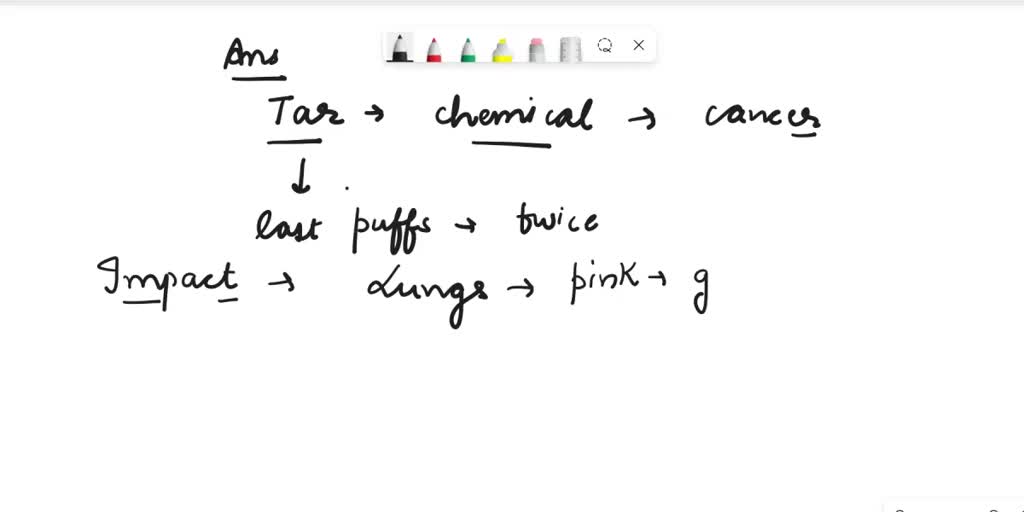 Ans
Tar → chemical → cancer
↓
last puffs → twice
Impact → Lungs → pink → g